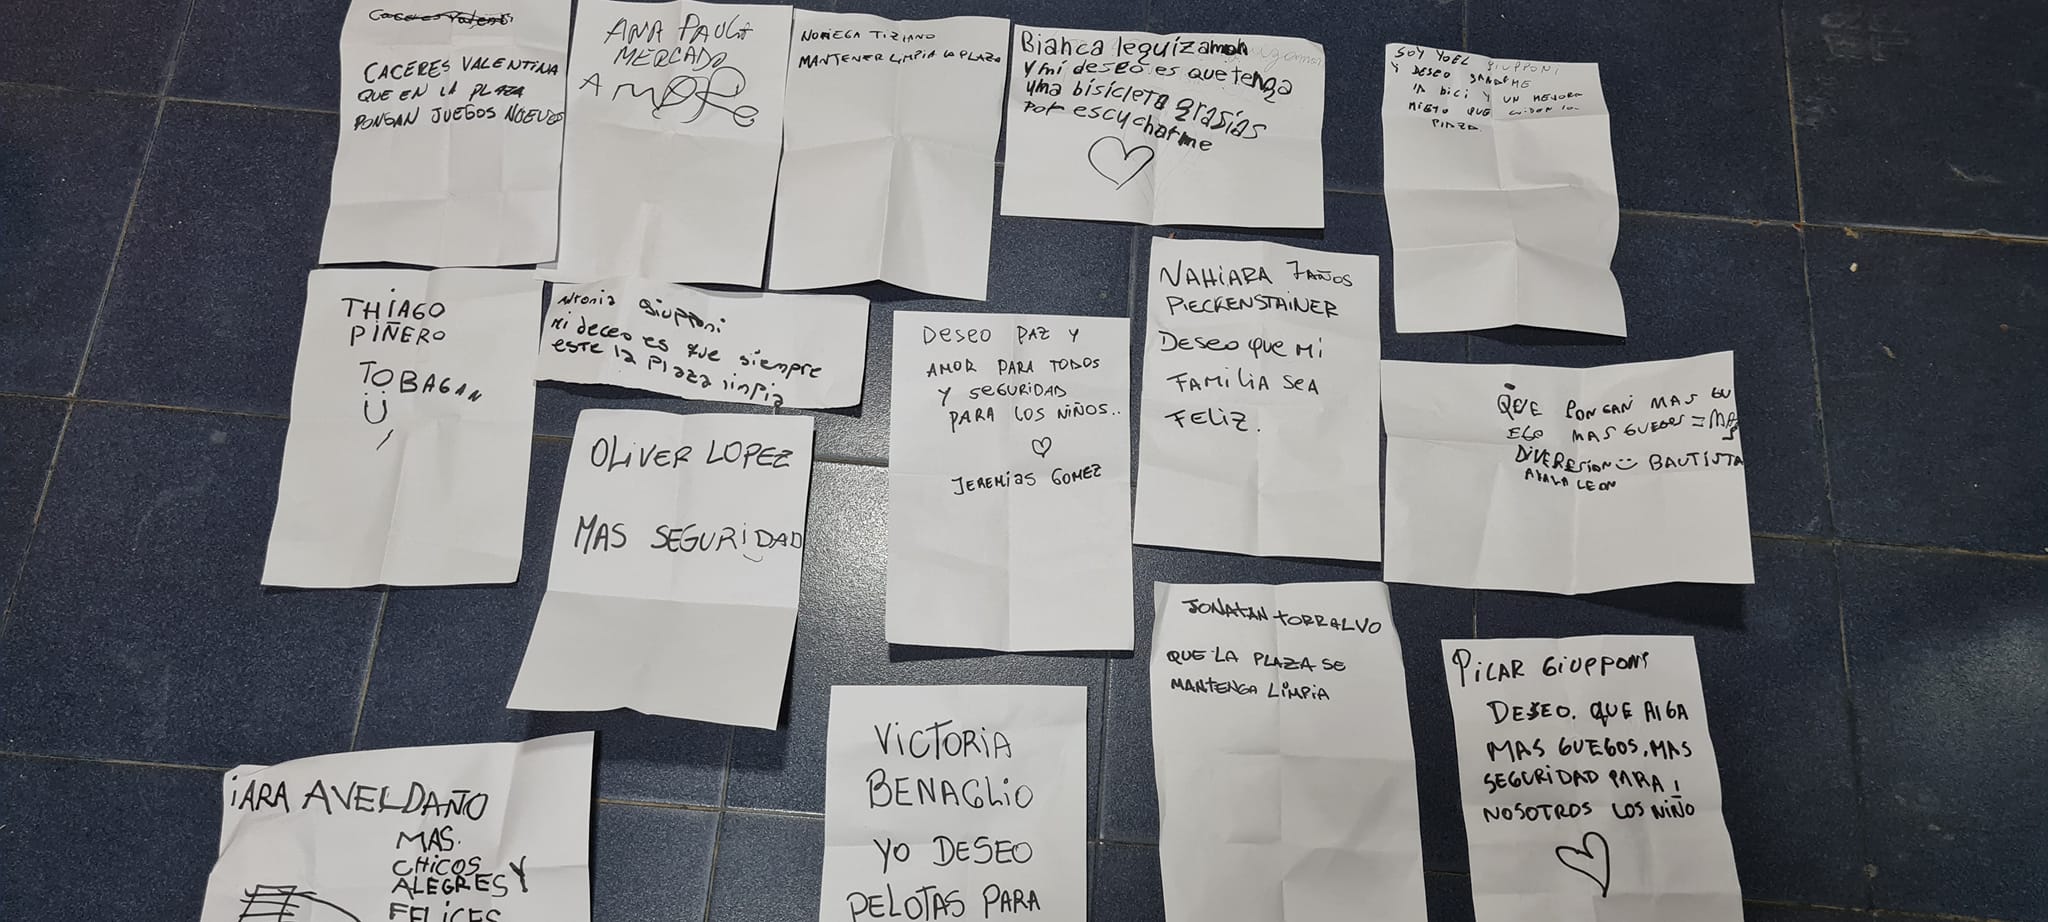 Caceres Valenti
CACERES VALENTINA
QUE EN LA PLAZA
PONGAN JUEGOS NUEVOS
ANA PAULA
MERCADO
AMOR
NORIEGA TIZIANO
MANTENER LIMPIA LA PLAZA
Bianca leguizamon
y mi deseo es que tenga
una bisicleta grasias
por escucharme
SOY YOEL GIUPPONI
Y DESEO
LA BICI Y UN MEJORA
MIETO QUE CUIDEN LA
PLAZA.
THIAGO
PIÑERO
TOBAGAN
Antonia Giupponi
Mi deceo es que siempre
este la Plaza limpia
DESEO PAZ Y
AMOR PARA TODOS
Y SEGURIDAD
PARA LOS NIÑOS..
JEREMIAS GOMEZ
NAHIARA 7 AÑOS
PIECKENSTAINER
DESEO QUE MI
FAMILIA SEA
FELIZ.
QEUE PONGAN MAS GU
EGO MAS GUEGOS = MAS
DIVERSION BAUTISTA
AYALA LEON
OLIVER LOPEZ
MAS SEGURIDAD
JONATAN TORRALVO
QUE LA PLAZA SE
MANTENGA LIMPIA
PILAR GIUPPONI
DESEO. QUE AIGA
MAS GUEGOS. MAS
SEGURIDAD PARA
NOSOTROS LOS NIÑO
IARA AVELDAÑO
MAS.
CHICOS Y
ALEGRES
FELICES
VICTORIA
BENAGLIO
YO DESEO
PELOTAS PARA